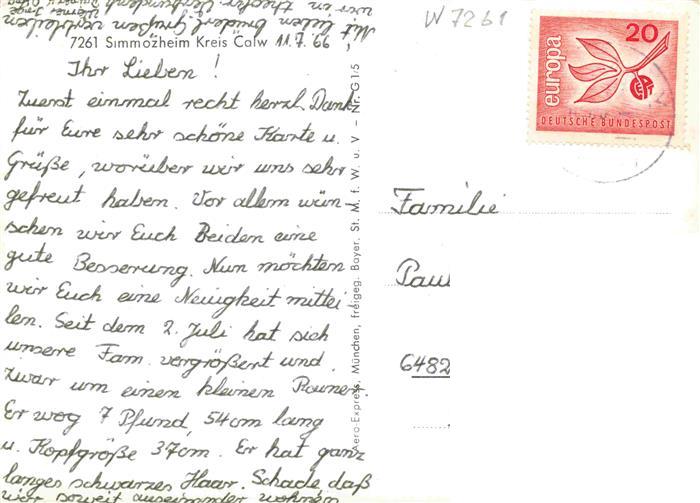 W 7261
7261 Simmozheim Kreis Calw 11.7.66
Ihr Lieben !
Zuerst einmal recht herzl. Dank
für Eure sehr schöne Karte u.
Grüße, worüber wir uns sehr
gefreut haben. Vor allem wün
schen wir Euch Beiden eine
gute Besserung. Nun möchten
wir Euch eine Neuigkeit mittei-
len. Seit dem 2. Juli hat sich
unsere Fam. vergrößert und
zwar um einen kleinen
Er wog 7 Pfund, 54 cm lang
u. Kopfgröße 37 cm. Er hat ganz
langes schwarzes Haar. Schade, daß
wir soweit auseinander wohnen
Mit lieben Grüßen verbleiben
wir in
Aero-Express, München, freigeg. Bayer. St. M. f. W. u. V – Nr. G 1/5
europa
20
DEUTSCHE BUNDESPOST
Familie
Paul
6482